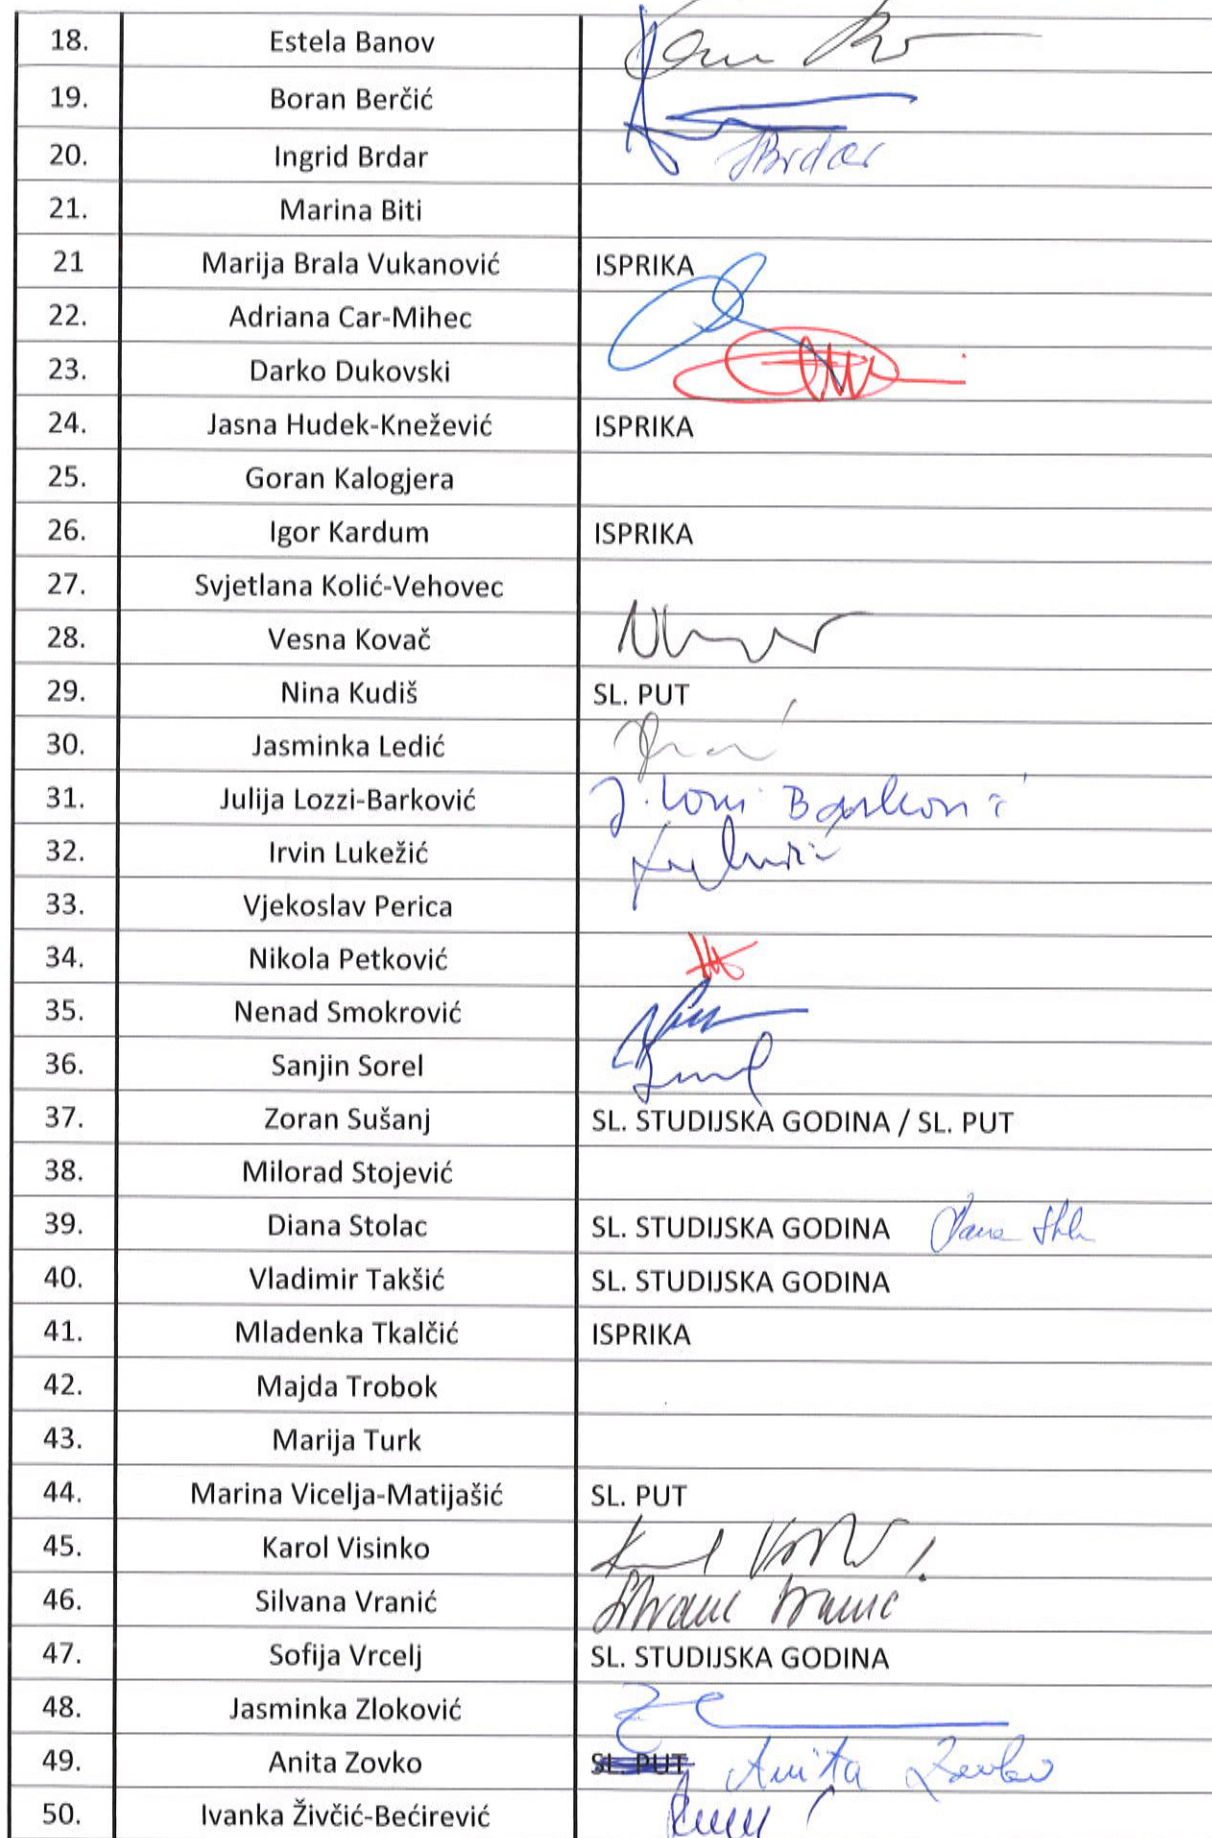 18. Estela Banov
19. Boran Berčić
20. Ingrid Brdar IBrdar
21. Marina Biti
21 Marija Brala Vukanović ISPRIKA
22. Adriana Car-Mihec
23. Darko Dukovski
24. Jasna Hudek-Knežević ISPRIKA
25. Goran Kalogjera
26. Igor Kardum ISPRIKA
27. Svjetlana Kolić-Vehovec
28. Vesna Kovač
29. Nina Kudiš SL. PUT
30. Jasminka Ledić
31. Julija Lozzi-Barković
32. Irvin Lukežić
33. Vjekoslav Perica
34. Nikola Petković
35. Nenad Smokrović
36. Sanjin Sorel
37. Zoran Sušanj SL. STUDIJSKA GODINA / SL. PUT
38. Milorad Stojević
39. Diana Stolac SL. STUDIJSKA GODINA
40. Vladimir Takšić SL. STUDIJSKA GODINA
41. Mladenka Tkalčić ISPRIKA
42. Majda Trobok
43. Marija Turk
44. Marina Vicelja-Matijašić SL. PUT
45. Karol Visinko
46. Silvana Vranić
47. Sofija Vrcelj SL. STUDIJSKA GODINA
48. Jasminka Zloković
49. Anita Zovko SL. PUT Anita Zovko
50. Ivanka Živčić-Bećirević